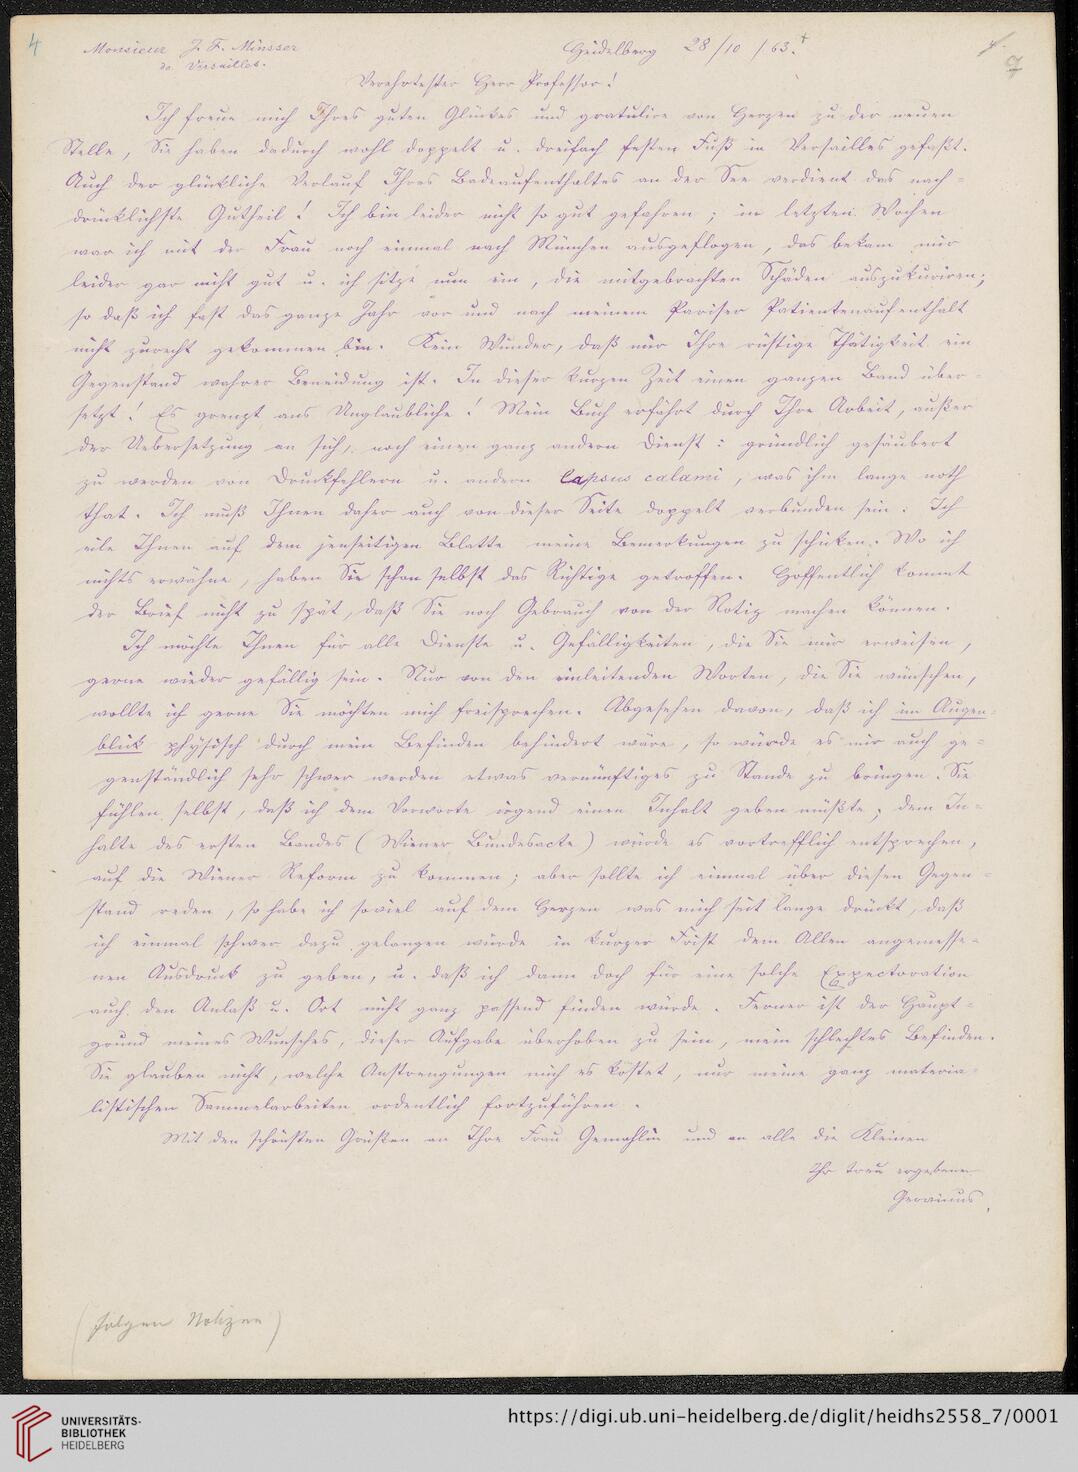 4
Monsieur J. F. Minsser
de Versailles.
Heidelberg 28/10/63.
Verehrtester Herr Professor!
Ich freue mich Ihres guten Glückes und gratulire von Herzen zu der neuen
Stelle, Sie haben dadurch wohl doppelt u. dreifach festen Fuß in Versailles gefaßt.
Auch der glückliche Verlauf Ihres Badeaufenthaltes an der See verdient das nach-
drücklichste Gutheil! Ich bin leider nicht so gut gefahren; in letzten Wochen
war ich mit der Frau noch einmal nach München ausgeflogen, das bekam mir
leider gar nicht gut u. ich sitze nun ein, die mitgebrachten Schäden auszukuriren;
so daß ich fast das ganze Jahr vor und nach meinem Pariser Patientenaufenthalt
nicht zurecht gekommen bin. Kein Wunder, daß mir Ihre rüstige Thätigkeit ein
Gegenstand wahrer Beneidung ist. In dieser kurzen Zeit einen ganzen Band über-
setzt! Es grenzt ans Unglaubliche! Mein Buch erfährt durch Ihre Arbeit, außer
der Uebersetzung an sich, noch einen ganz andern Dienst: gründlich gesäubert
zu werden von Druckfehlern u. andern lapsus calami, was ihm lange noth
that. Ich muß Ihnen daher auch von dieser Seite doppelt verbunden sein. Ich
eile Ihnen auf dem jenseitigen Blatte meine Bemerkungen zu schicken. Wo ich
nichts erwähne, haben Sie schon selbst das Richtige getroffen. Hoffentlich kommt
der Brief nicht zu spät, daß Sie noch Gebrauch von der Notiz machen können.
Ich möchte Ihnen für alle Dienste u. Gefälligkeiten, die Sie mir erweisen,
gerne wieder gefällig sein. Nur von den einleitenden Worten, die Sie wünschen,
wollte ich gerne Sie möchten mich freisprechen. Abgesehen davon, daß ich im Augen-
blick physisch durch mein Befinden behindert wäre, so würde es mir auch ge-
genständlich sehr schwer werden etwas vernünftiges zu Stande zu bringen. Sie
fühlen selbst, daß ich dem Vorworte irgend einen Inhalt geben müßte; dem In-
halte des ersten Bandes (Wiener Bundesacte) würde es vortrefflich entsprechen,
auf die Wiener Reform zu kommen; aber sollte ich einmal über diesen Gegen-
stand reden, so habe ich soviel auf dem Herzen was mich seit lange drückt, daß
ich einmal schwer dazu gelangen würde in kurzer Frist dem Allen angemesse-
nen Ausdruck zu geben, u. daß ich dann doch für eine solche Expectoration
auch den Anlaß u. Ort nicht ganz passend finden würde. Ferner ist der Haupt-
grund meines Wunsches, dieser Aufgabe überhoben zu sein, mein schlechtes Befinden.
Sie glauben nicht, welche Anstrengungen mich es kostet, nur meine ganz materia-
listischen Sammelarbeiten ordentlich fortzuführen.
Mit den schönsten Grüßen an Ihre Frau Gemahlin und an alle die Kleinen
Ihr treu ergebener
Gervinus.
(folgen Notizen)
UNIVERSITÄTS-
BIBLIOTHEK
HEIDELBERG
https://digi.ub.uni-heidelberg.de/diglit/heidhs2558_7/0001